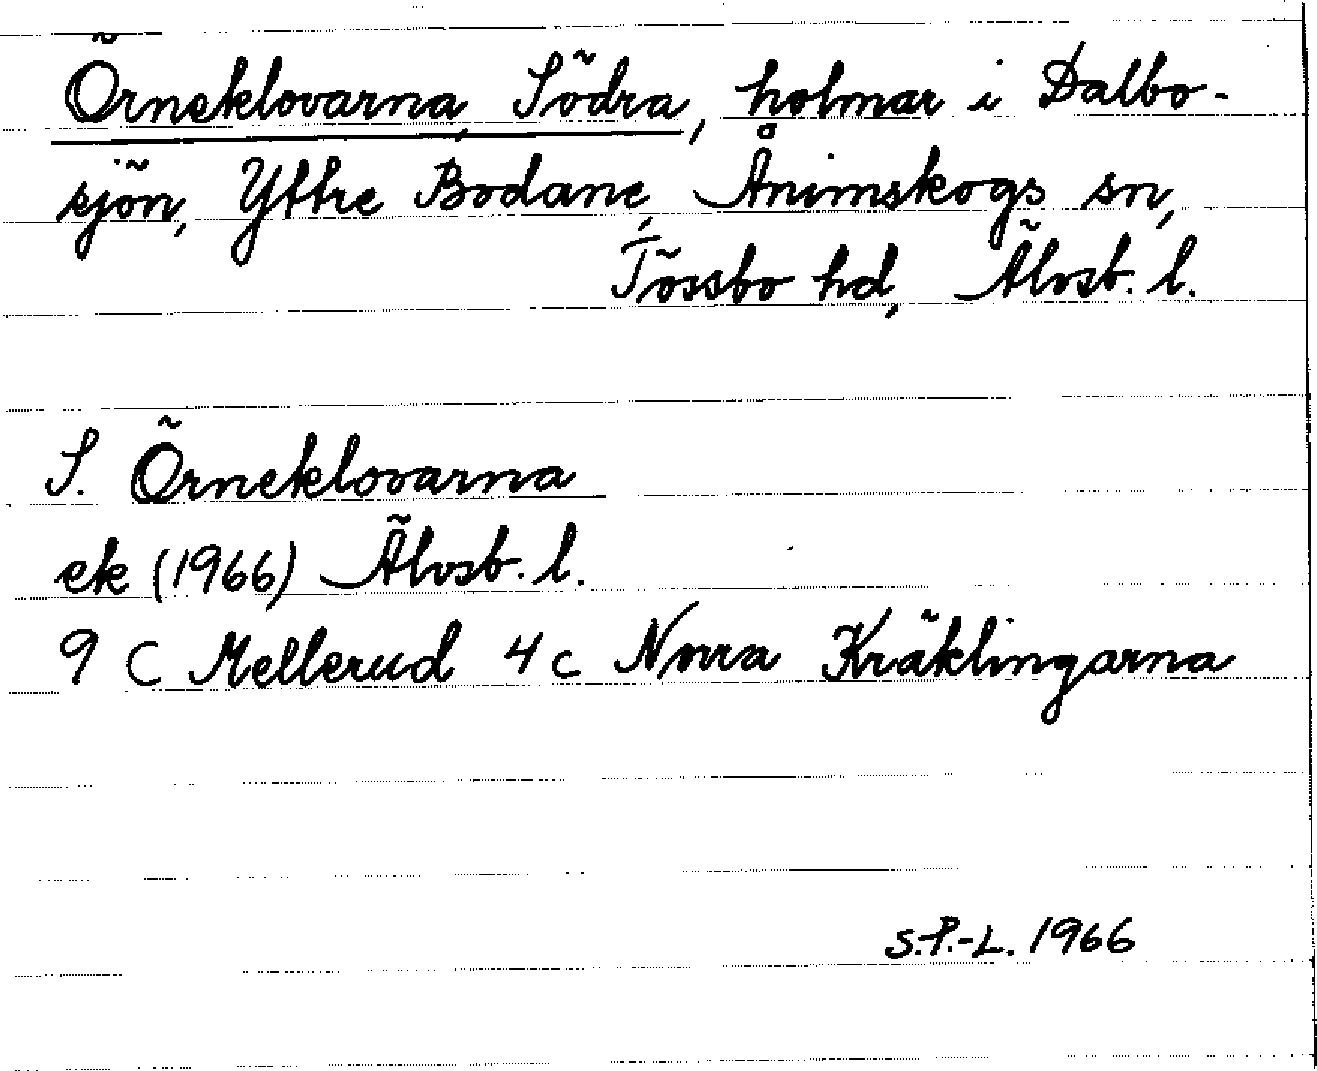 Örneklovarna, Södra, holmar i Dalbo-
sjön, Yttre Bodane, Ånimskogs sn,
Tössbo hd, Älvsb. l.
S. Örneklovarna
ek (1966) Älvsb. l.
9 C Mellerud 4c Norra Kräklingarna
S.P.-L. 1966